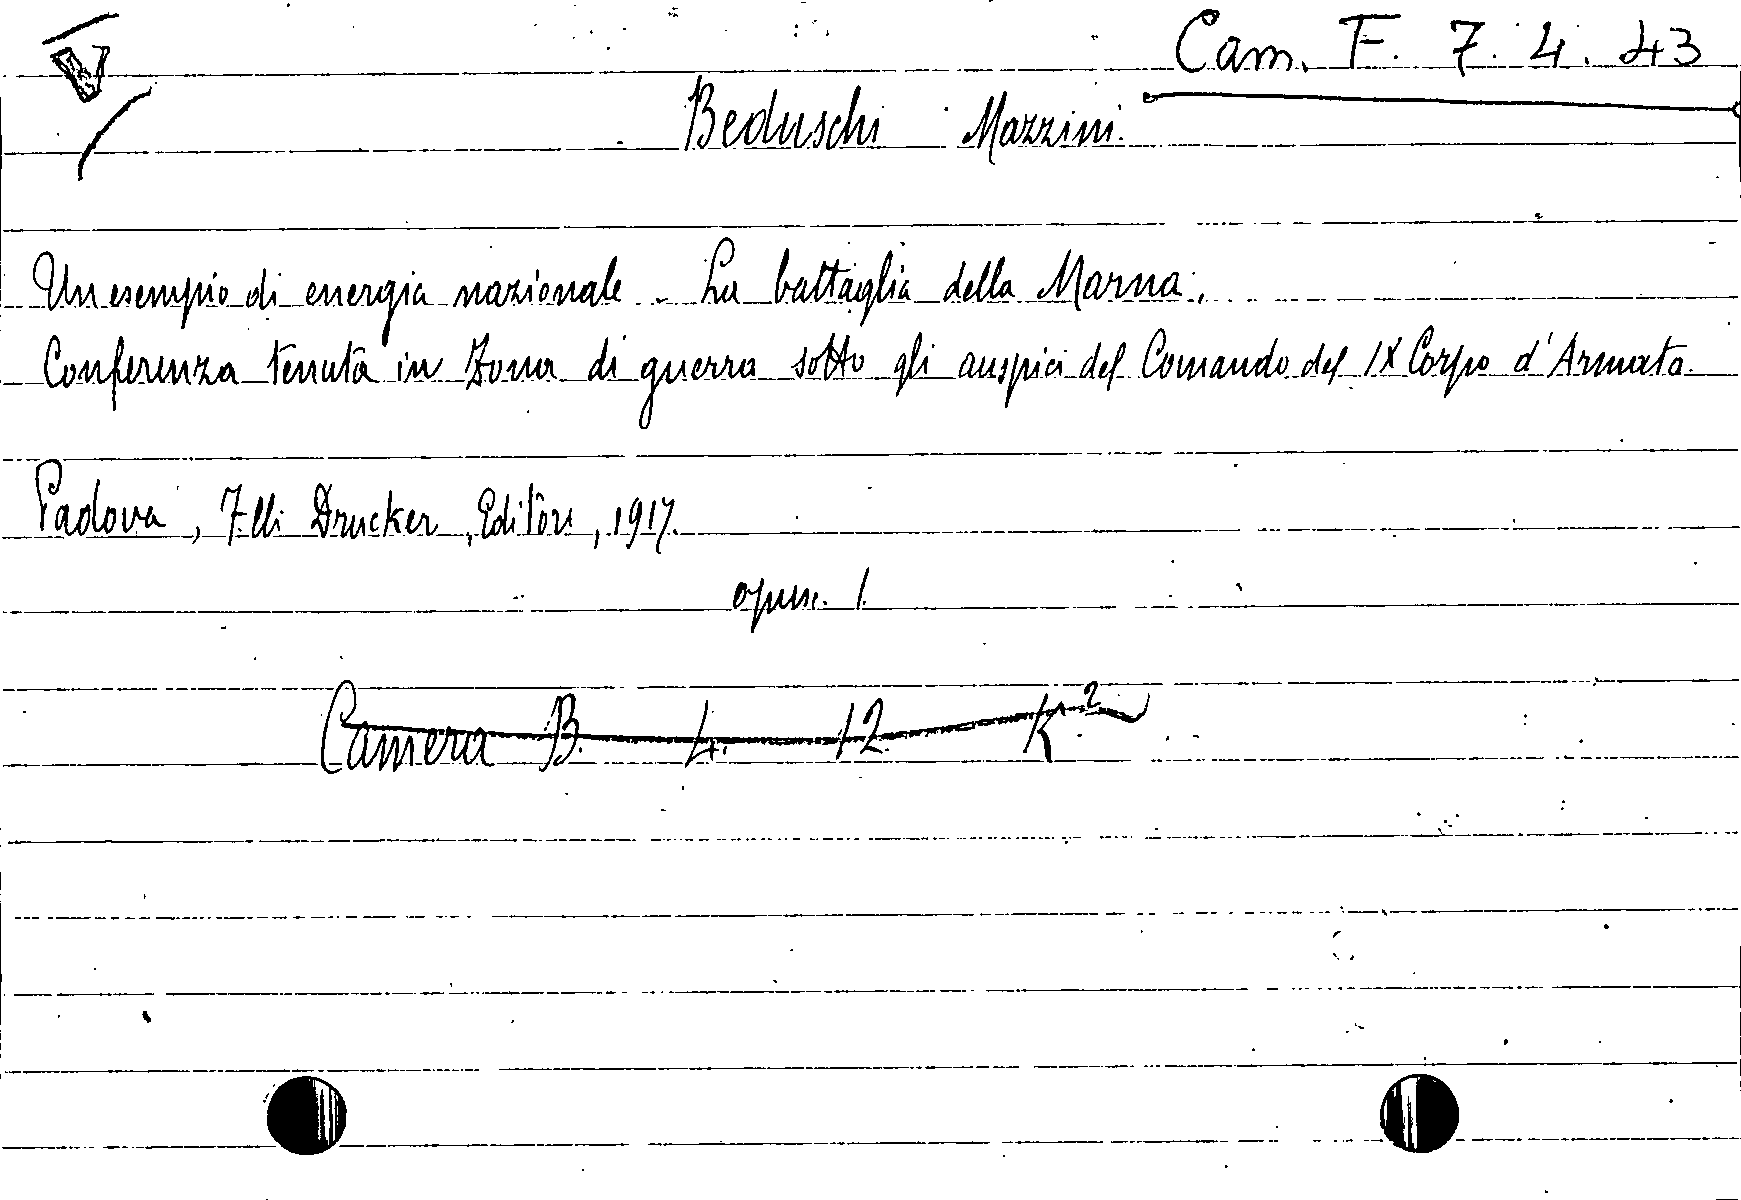 Cam. F. 7. 4. 43
Beduschi Mazzini.
Un esempio di energia nazionale - La battaglia della Marna.
Conferenza tenuta in Zona di guerra sotto gli auspici del Comando del IX Corpo d'Armata
Padova, F.lli Drucker, Editori, 1917.
opusc. 1.
Camera B. 4. 12. K²